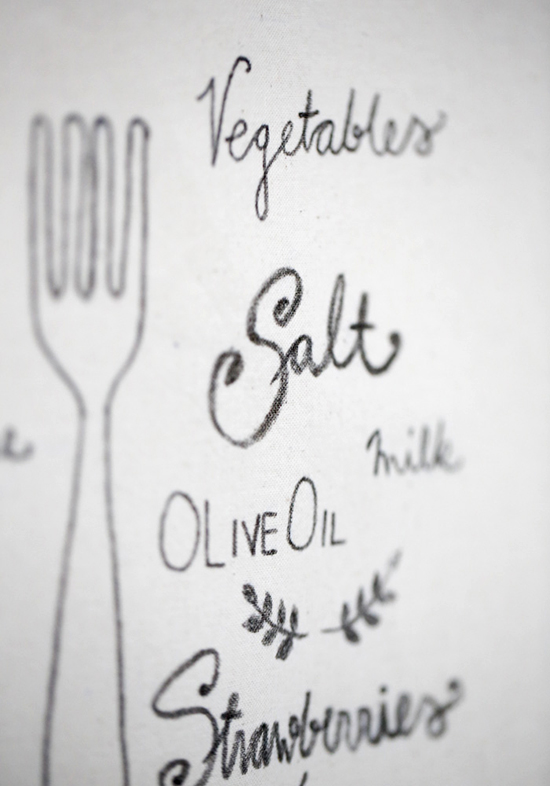 Vegetables
Salt
milk
OLIVE OIL
Strawberries